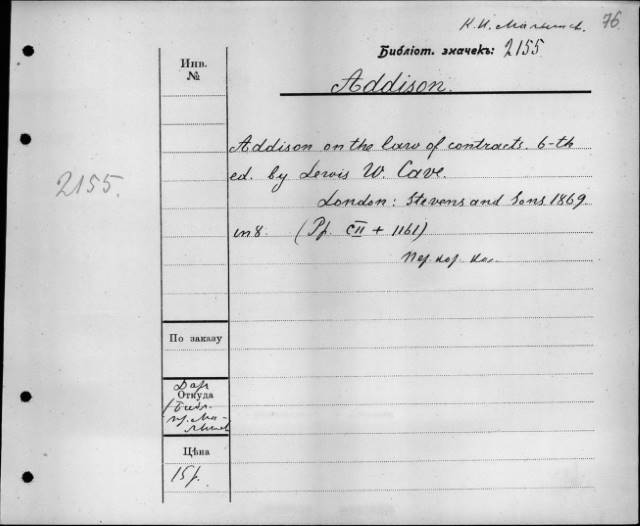 К. И. Малышев.
76
Библіот. значекъ: 2155
Addison.
Инв.
№
2155.
Addison on the law of contracts. 6-th
ed. by Lewis W. Cave.
London: Stevens and Sons 1869
in 8. (Pp. CII + 1161)
Пер. кор.
По заказу
Дар
Откуда
Библ.
пр. Ма-
лышев
Цѣна
15 р.